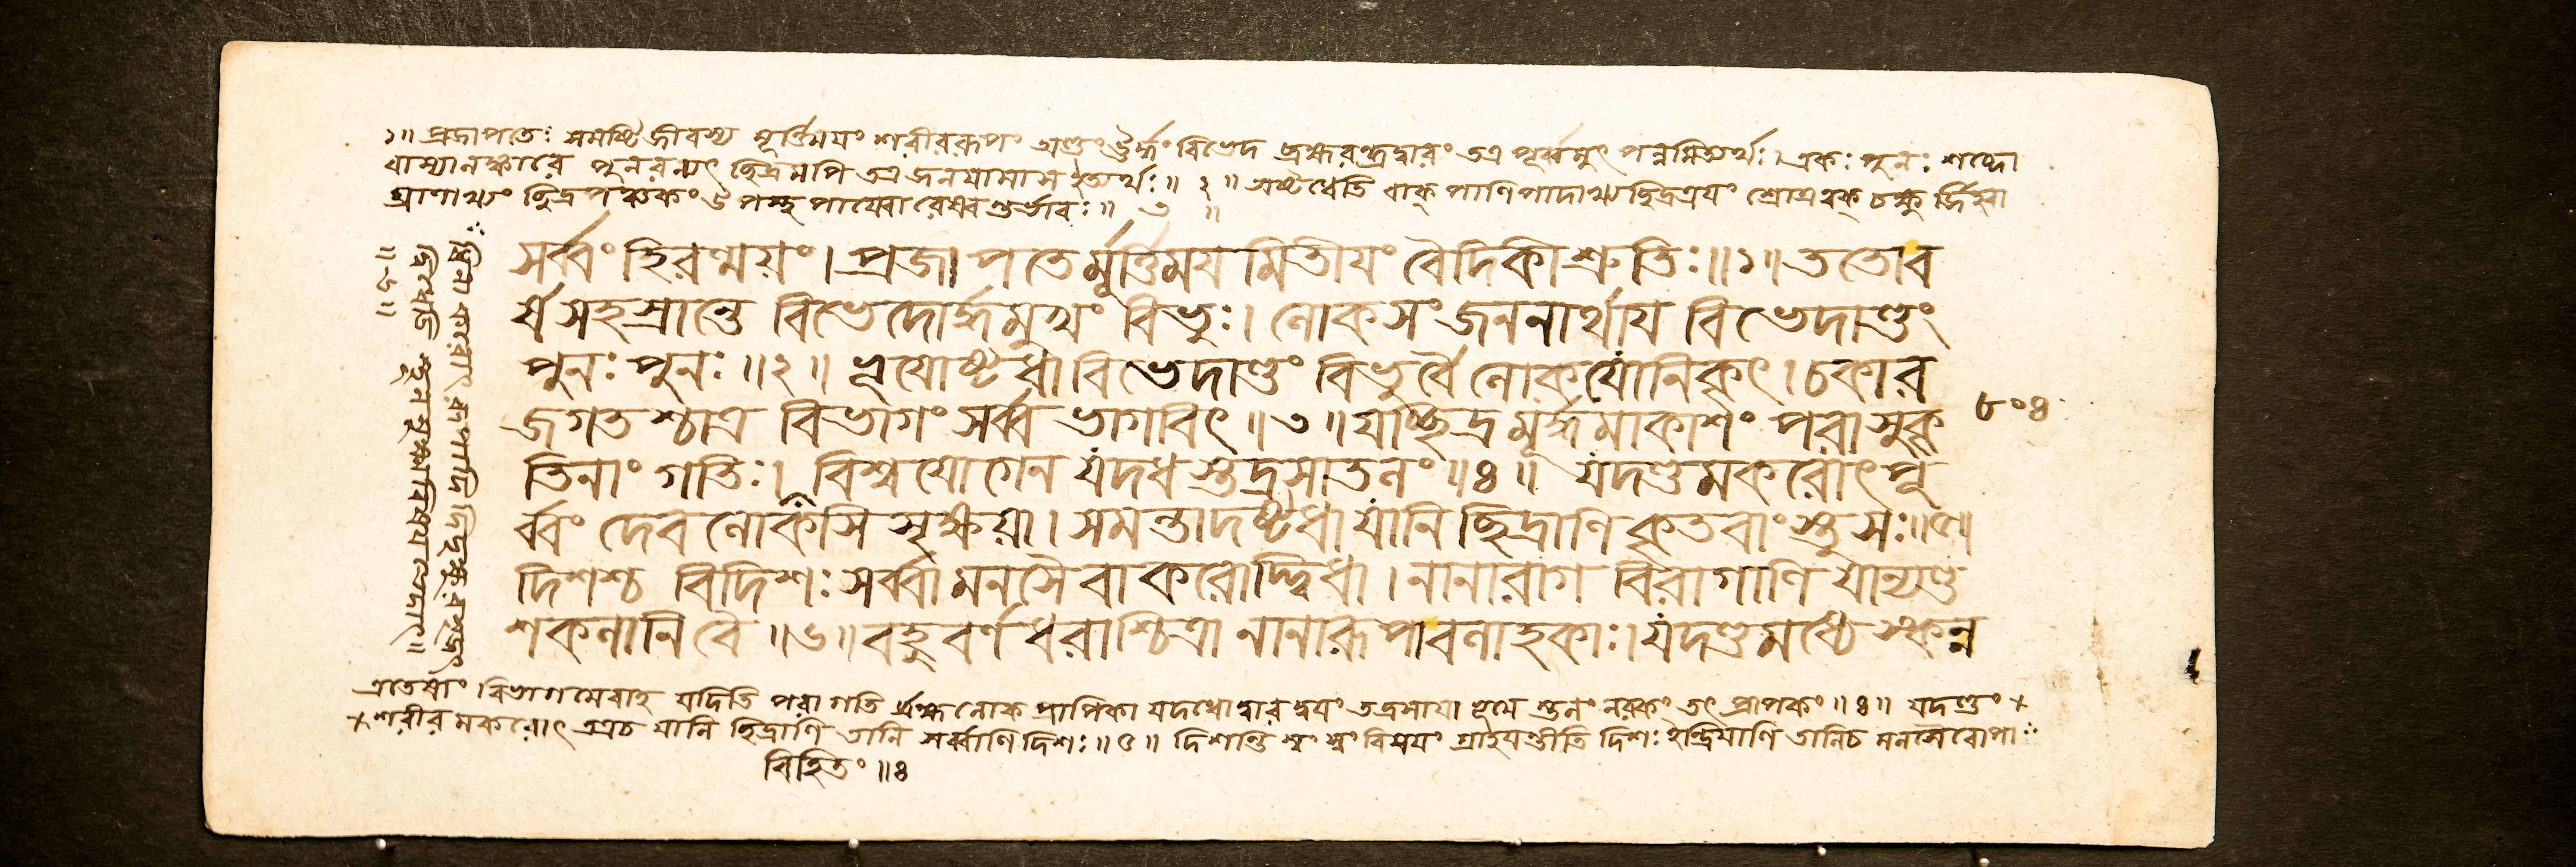 ১॥ প্রজাপতেঃ সমষ্টিজীবস্য মূর্ত্তিময়ং শরীররূপং অণ্ডং ঊর্দ্ধং বিভেদ ব্রহ্মরন্ধ্রদ্বারং তত্র পূর্ব্বমুৎপন্নমিত্যর্থঃ। একঃ পুনঃ শব্দো
পুনরন্যৎ ছিদ্রমপি তত্র জনয়ামাস ইত্যর্থঃ॥ ২॥ অষ্টধেতি বাক্ পাণিপাদাখ্যছিদ্রত্রয়ং শ্রোত্রত্বক্ চক্ষুর্জিহ্বা
ঘ্রাণাখ্যং ছিদ্রপঞ্চকং ॥ ৩ ॥
সর্ব্বং হিরণ্ময়ং। প্রজাপতের্মূর্ত্তিময়মিতীয়ং বৈদিকী শ্রুতিঃ॥১॥ ততো ব
র্ষসহস্রান্তে বিভেদোর্দ্ধমুখং বিভুঃ। লোকসংজননার্থায় বিভেদাণ্ডং
পুনঃ পুনঃ॥২॥ ভূয়োষ্টধা বিভেদাণ্ডং বিভুর্বৈ লোকযোনিকৃৎ। চকার
জগতশ্চাত্র বিভাগং সর্ব্বভাগবিৎ॥৩॥ যচ্ছিদ্রমূর্দ্ধমাকাশং পরা সুকৃ
তিনাং গতিঃ। বিশ্বযোগেন যদধস্তদ্রসাতলং॥৪॥ যদণ্ডমকরোৎ পূ
র্ব্বং দেবলোকসিসৃক্ষয়া। সমন্তাদষ্টধা যানি ছিদ্রাণি কৃতবাংস্তু সঃ॥৫॥
দিশশ্চ বিদিশঃ সর্ব্বা মনসৈবাকরোদ্দ্বিধা। নানারাগবিরাগাণি যান্যণ্ড
শকলানি বৈ॥৬॥ বহুবর্ণধরাশ্চিত্রা নানারূপা বলাহকাঃ। যদণ্ডমধ্যে স্কন্ন
৮০৪
এতেষাং বিভাগমেবাহ যদিতি পরা গতি র্ব্রহ্মলোকপ্রাপিকা যদধোদ্বারদ্বয়ং তদ্রসায়া তলং নরকং তৎ প্রাপকং॥৪॥ যদণ্ডং +
+ শরীরমকরোৎ তত্র চ যানি ছিদ্রাণি তানি সর্ব্বাণি দিশঃ॥৫॥ দিশান্তি স্বং স্বং বিষয়ং গ্রাহয়ন্তীতি দিশঃ ইন্দ্রিয়াণি তানি চ মনসৈবোপা
বিহিতং॥৪
দ্বিধেতি স্থূলসূক্ষ্মবিষয়ভেদাৎ॥
॥৬॥